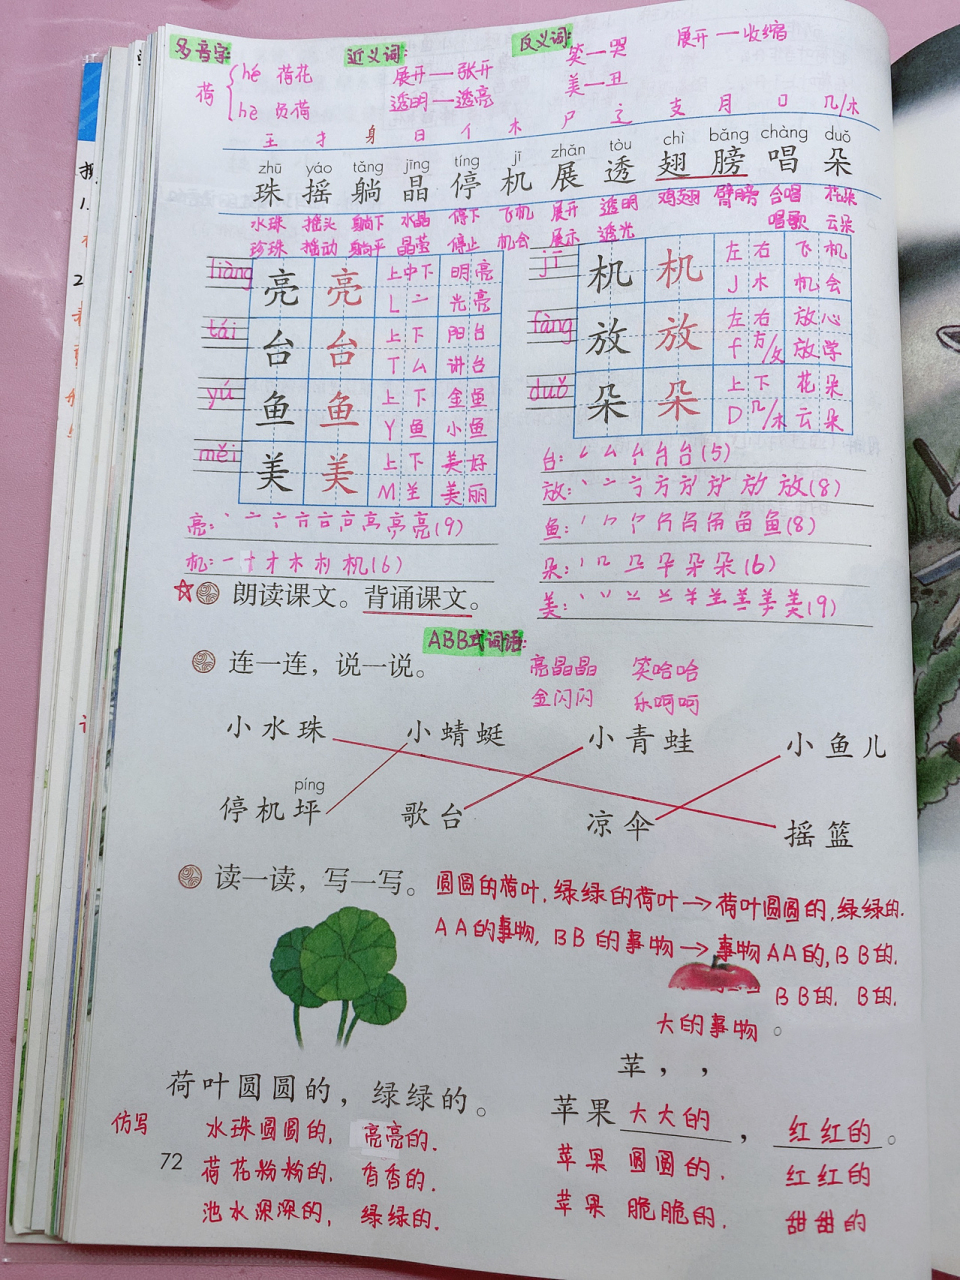 多音字: 近义词: 反义词: 展开—收缩
荷 hé 荷花 展开—张开 笑—哭
hè 负荷 透明—透亮 美—丑
王 扌 身 日 亻 木 尸 辶 支 月 口 几/木
zhū yáo tǎng jīng tíng jī zhǎn tòu chì bǎng chàng duǒ
珠 摇 躺 晶 停 机 展 透 翅 膀 唱 朵
水珠 摇头 躺下 水晶 停下 飞机 展开 透明 鸡翅 臂膀 合唱 花朵
珍珠 摇动 躺平 晶莹 停止 机会 展示 透光 唱歌 云朵
liàng 亮 亮 上中下 明亮
L 亠 光亮
tái 台 台 上下 阳台
T 厶 讲台
yú 鱼 鱼 上下 金鱼
Y 鱼 小鱼
měi 美 美 上下 美好
M 𦍌 美丽
jī 机 机 左右 飞机
J 木 机会
fàng 放 放 左右 放心
f 方/攵 放学
duǒ 朵 朵 上下 花朵
D 几/木 云朵
台: 台(5)
放: 放(8)
亮: 亮(9)
鱼: 鱼(8)
机: 机(6)
朵: 朵(6)
美: 美(9)
☆ 朗读课文。背诵课文。
ABB式词语:
连一连，说一说。
亮晶晶 笑哈哈
金闪闪 乐呵呵
小水珠 小蜻蜓 小青蛙 小鱼儿
píng
停机坪 歌台 凉伞 摇篮
读一读，写一写。
圆圆的荷叶,绿绿的荷叶→荷叶圆圆的,绿绿的.
AA的事物, BB的事物→事物AA的,BB的.
BB的. B的.
大的事物。
苹，，
荷叶圆圆的，绿绿的。
苹果大大的，红红的。
仿写
水珠圆圆的, 亮亮的.
荷花粉粉的, 香香的.
池水深深的, 绿绿的.
苹果 圆圆的, 红红的
苹果 脆脆的, 甜甜的
72